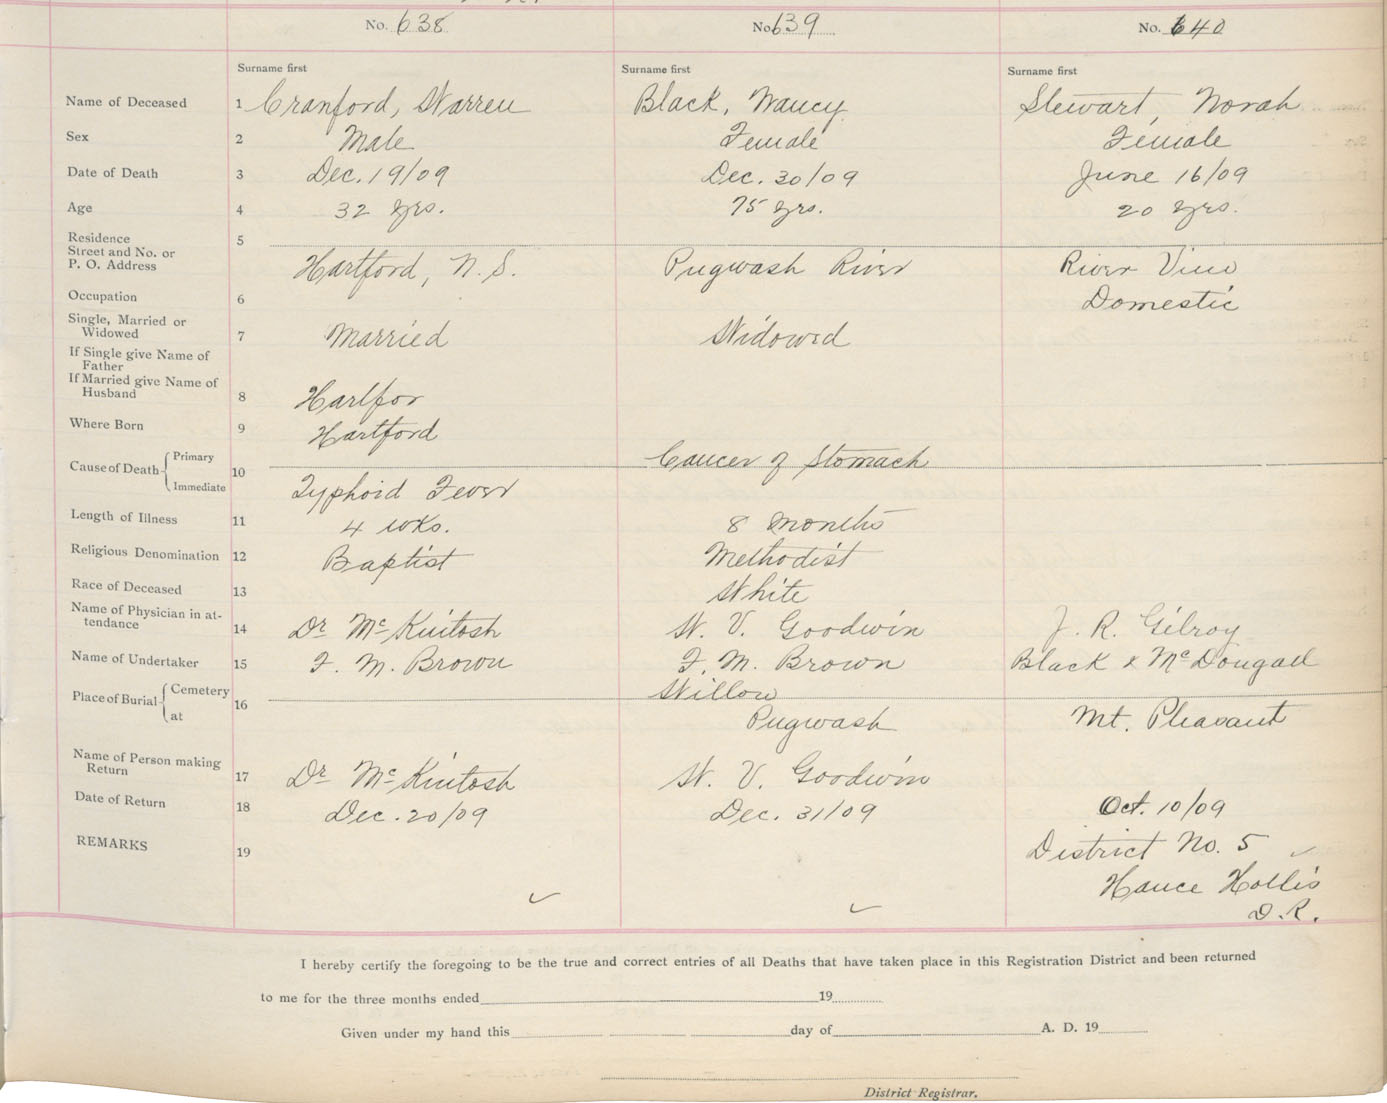 No. 638 No. 639 No. 640
Surname first Surname first Surname first
Name of Deceased 1 Cranford, Warren Black, Nancy Stewart, Norah
Sex 2 Male Female Female
Date of Death 3 Dec. 19/09 Dec. 30/09 June 16/09
Age 4 32 yrs. 75 yrs. 20 yrs.
Residence 5
Street and No. or
P. O. Address Hartford, N. S. Pugwash River River View
Occupation 6 Domestic
Single, Married or
Widowed 7 Married Widowed
If Single give Name of
Father
If Married give Name of
Husband 8 Hartfor
Where Born 9 Hartford
Cause of Death Primary 10 Cancer of Stomach
Immediate Typhoid Fever
Length of Illness 11 4 wks. 8 months
Religious Denomination 12 Baptist Methodist
Race of Deceased 13 White
Name of Physician in at-
tendance 14 Dr McKintosh W. V. Goodwin J. R. Gilroy
Name of Undertaker 15 F. M. Brown F. M. Brown Black & McDougall
Place of Burial Cemetery 16 Willow
at Pugwash Mt. Pleasant
Name of Person making
Return 17 Dr McKintosh W. V. Goodwin
Date of Return 18 Dec. 20/09 Dec. 31/09 Oct. 10/09
REMARKS 19 District No. 5
Hance Hollis
D. R.
I hereby certify the foregoing to be the true and correct entries of all Deaths that have taken place in this Registration District and been returned
to me for the three months ended 19
Given under my hand this day of A. D. 19
District Registrar.